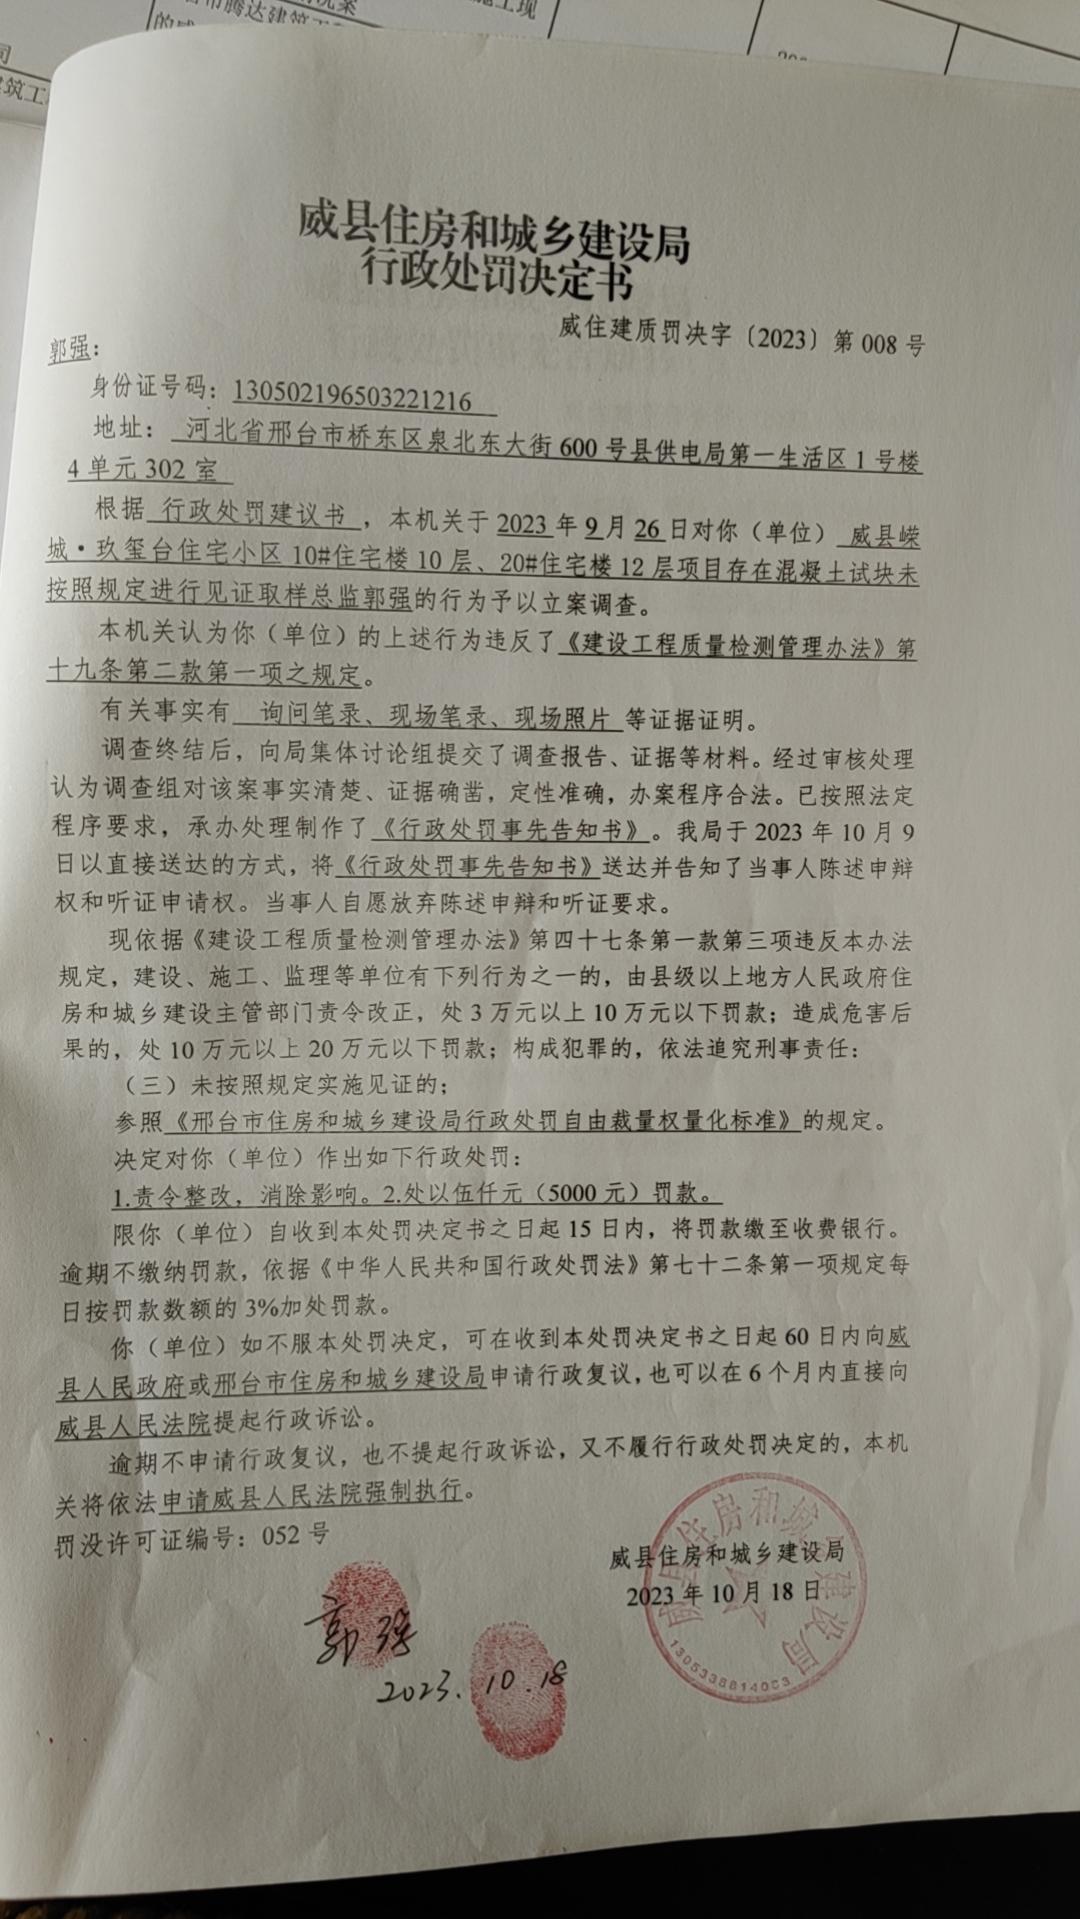 筑工
威县住房和城乡建设局
行政处罚决定书
威住建质罚决字〔2023〕第 008 号
郭强：
身份证号码：130502196503221216
地址：河北省邢台市桥东区泉北东大街 600 号县供电局第一生活区 1 号楼
4 单元 302 室
根据 行政处罚建议书 ，本机关于 2023 年 9 月 26 日对你（单位） 威县嵘
城·玖玺台住宅小区 10#住宅楼 10 层、20#住宅楼 12 层项目存在混凝土试块未
按照规定进行见证取样总监郭强的行为予以立案调查。
本机关认为你（单位）的上述行为违反了《建设工程质量检测管理办法》第
十九条第二款第一项之规定。
有关事实有 询问笔录、现场笔录、现场照片 等证据证明。
调查终结后，向局集体讨论组提交了调查报告、证据等材料。经过审核处理
认为调查组对该案事实清楚、证据确凿，定性准确，办案程序合法。已按照法定
程序要求，承办处理制作了《行政处罚事先告知书》。我局于 2023 年 10 月 9
日以直接送达的方式，将《行政处罚事先告知书》送达并告知了当事人陈述申辩
权和听证申请权。当事人自愿放弃陈述申辩和听证要求。
现依据《建设工程质量检测管理办法》第四十七条第一款第三项违反本办法
规定，建设、施工、监理等单位有下列行为之一的，由县级以上地方人民政府住
房和城乡建设主管部门责令改正，处 3 万元以上 10 万元以下罚款；造成危害后
果的，处 10 万元以上 20 万元以下罚款；构成犯罪的，依法追究刑事责任：
（三）未按照规定实施见证的；
参照《邢台市住房和城乡建设局行政处罚自由裁量权量化标准》的规定。
决定对你（单位）作出如下行政处罚：
1.责令整改，消除影响。2.处以伍仟元（5000 元）罚款。
限你（单位）自收到本处罚决定书之日起 15 日内，将罚款缴至收费银行。
逾期不缴纳罚款，依据《中华人民共和国行政处罚法》第七十二条第一项规定每
日按罚款数额的 3%加处罚款。
你（单位）如不服本处罚决定，可在收到本处罚决定书之日起 60 日内向威
县人民政府或邢台市住房和城乡建设局申请行政复议，也可以在 6 个月内直接向
威县人民法院提起行政诉讼。
逾期不申请行政复议，也不提起行政诉讼，又不履行行政处罚决定的，本机
关将依法申请威县人民法院强制执行。
罚没许可证编号：052 号
威县住房和城乡建设局
2023 年 10 月 18 日
威县住房和城乡建设局
1305338814003
郭强
2023.10.18